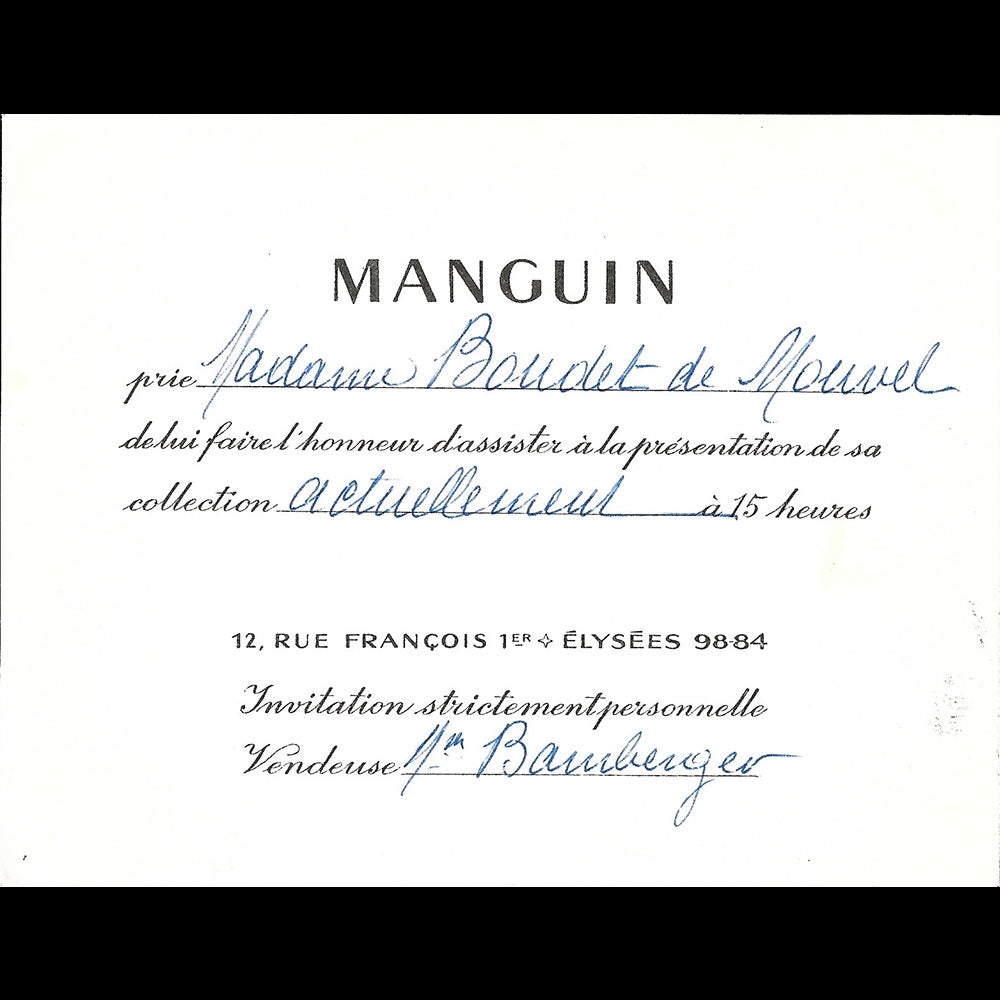 MANGUIN
prie Madame Boudet de Mouvel
de lui faire l'honneur d'assister à la présentation de sa
collection actuellement à 15 heures
12, RUE FRANÇOIS 1ER ✧ ÉLYSÉES 98-84
Invitation strictement personnelle
Vendeuse Mm Bamberger